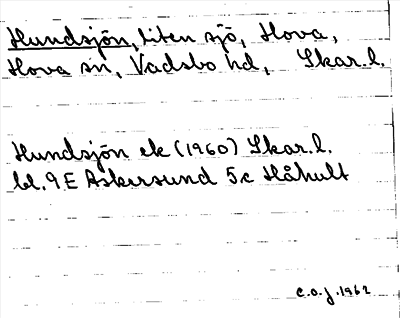 Hundsjön, liten sjö, Hova,
Hova sn, Vadsbo hd, Skar.l.
Hundsjön ek (1960) Skar.l.
bl. 9E Askersund 5c Håhult
C.O.J. 1962